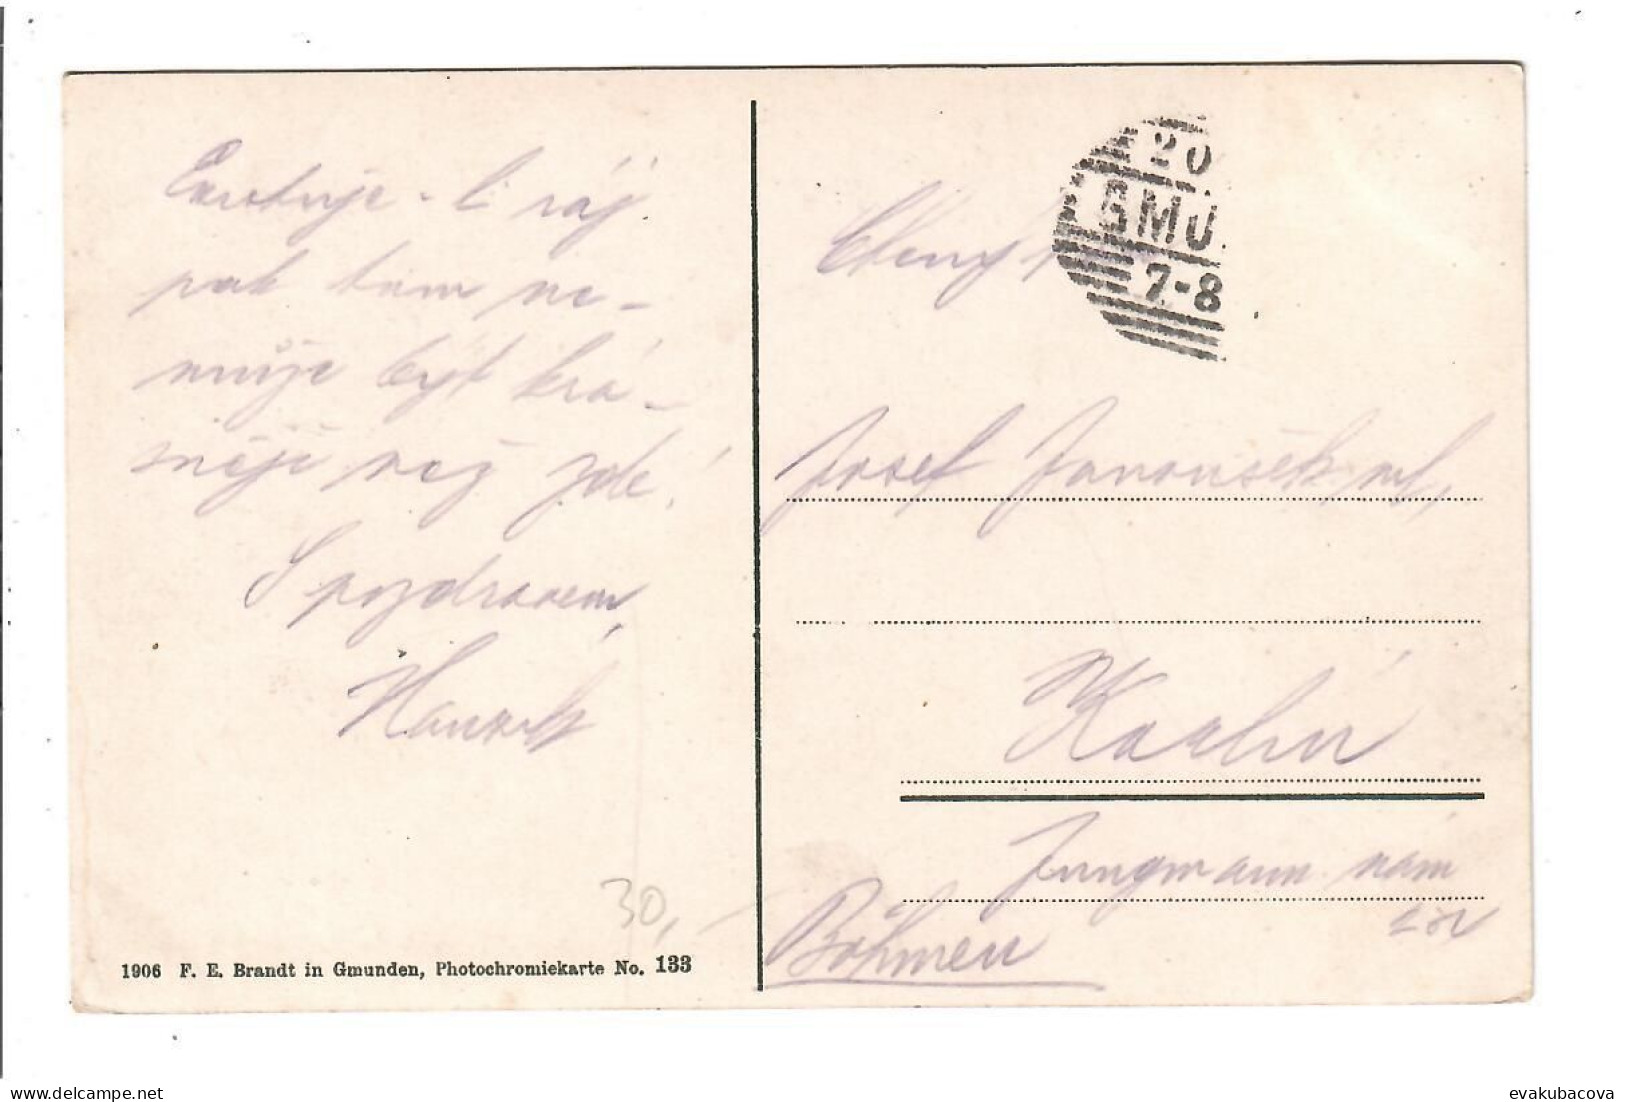 Existuje-li ráj
pak tam ne-
může být krá-
sněje než zde!
S pozdravem
20
GMU
7-8
Josef Janoušek ml,
Karlín
Jungmann nám
Böhmen
30,-
1906 F. E. Brandt in Gmunden, Photochromiekarte No. 133
evakubacova